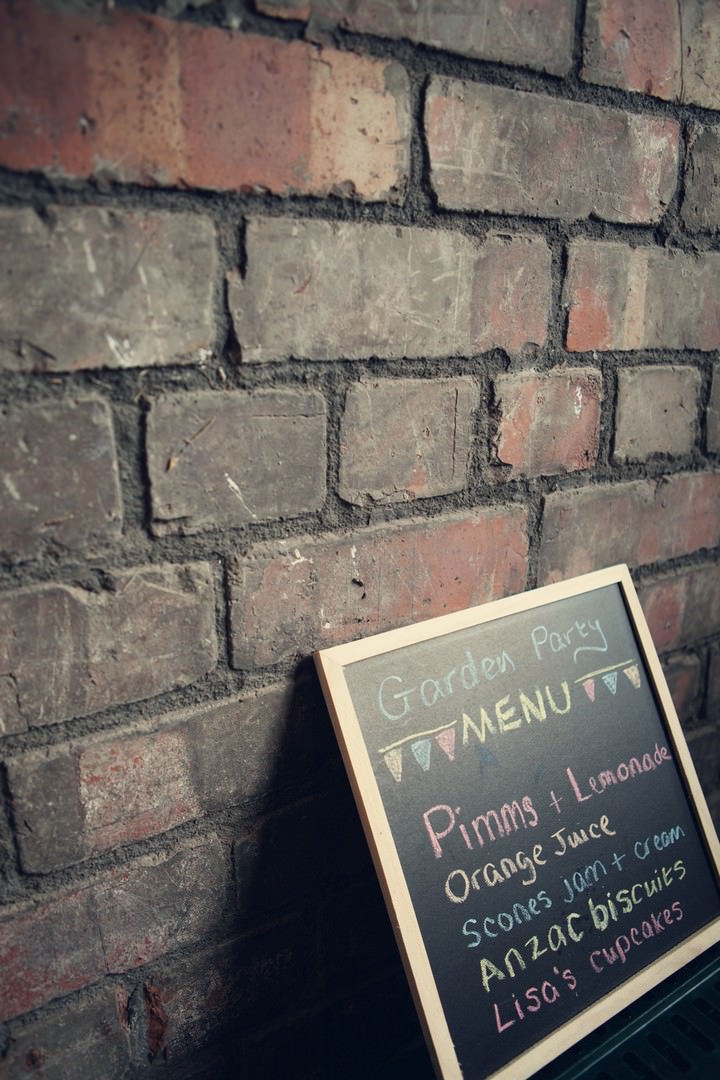 Garden Party
MENU
Pimms + Lemonade
Orange Juice
Scones jam + cream
Anzac biscuits
Lisa's cupcakes